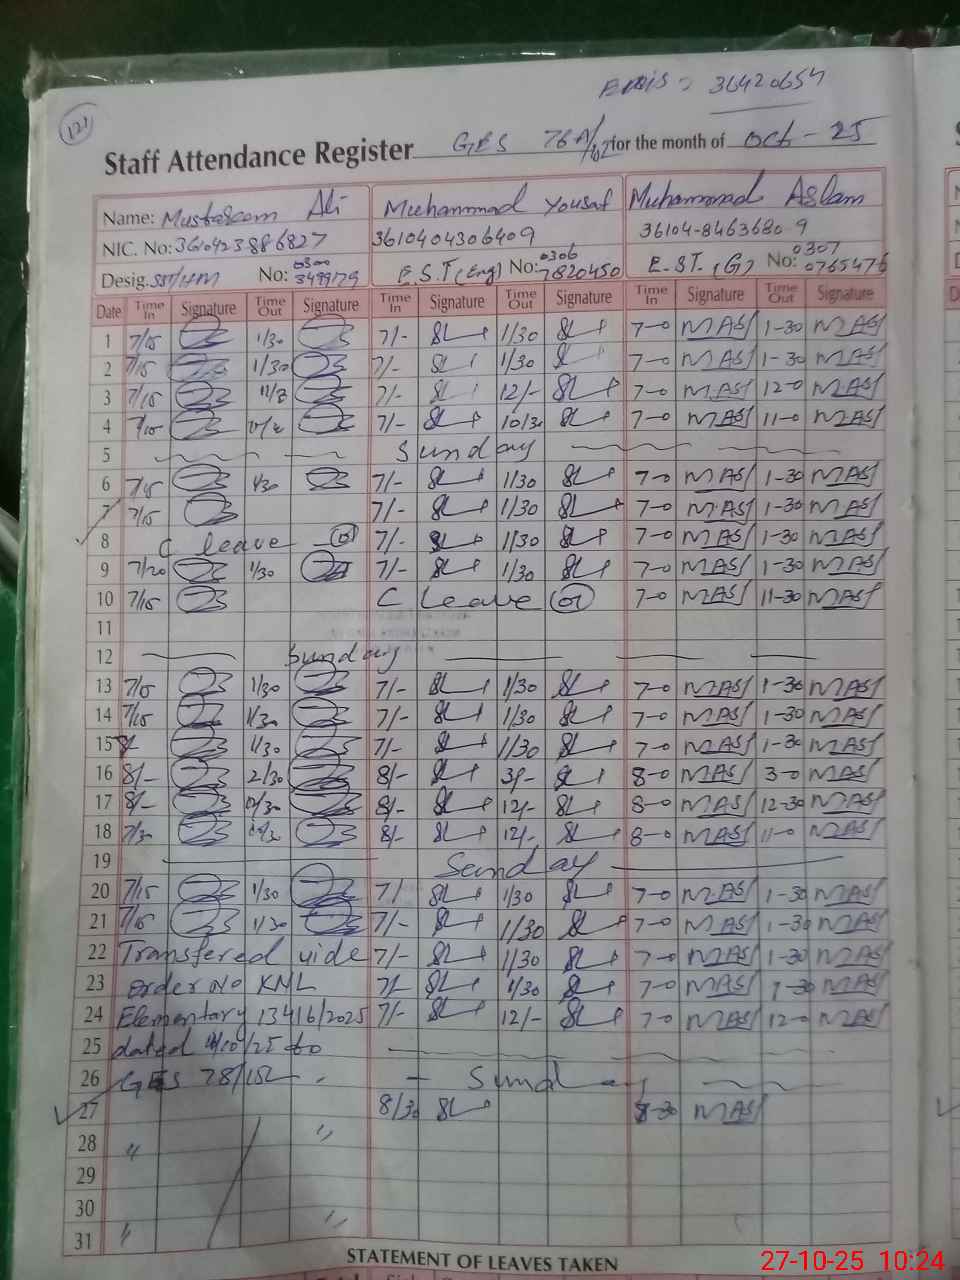 121
36420654
Staff Attendance Register GES 76A/ for the month of Oct-25
Name: Ali Muhammad Yousaf Muhammad Aslam
NIC. No: 3610423886827 3610404306409 36104-8463680 9
Desig. SST/HM No: 0300 3499179 E.S.T (Eng) No: 0306 7820450 E.ST. (G) No: 0307 0765476
Date Time In Signature Time Out Signature Time In Signature Time Out Signature Time In Signature Time Out Signature
1 7/15 1/30 7/- 1/30 7-0 MAS 1-30 MAS
2 7/15 1/30 7/- 1/30 7-0 MAS 1-30 MAS
3 7/15 7/- 12/- 7-0 MAS 12-0 MAS
4 7/15 7/- 10/30 7-0 MAS 11-0 MAS
5 Sunday
6 7/15 1/30 7/- 1/30 7-0 MAS 1-30 MAS
7 7/15 7/- 1/30 7-0 MAS 1-30 MAS
8 C leave 7/- 1/30 7-0 MAS 1-30 MAS
9 7/20 1/30 7/- 1/30 7-0 MAS 1-30 MAS
10 7/15 C Leave 01 7-0 MAS 11-30 MAS
11
12 Sunday
13 7/15 1/30 7/- 1/30 7-0 MAS 1-30 MAS
14 7/15 1/30 7/- 1/30 7-0 MAS 1-30 MAS
15 1/30 7/- 1/30 7-0 MAS 1-30 MAS
16 8/- 2/30 8/- 3/- 8-0 MAS 3-0 MAS
17 8/- 8/- 12/- 8-0 MAS 12-30 MAS
18 7/30 8/- 12/- 8-0 MAS 11-0 MAS
19 Sunday
20 7/15 1/30 7/- 1/30 7-0 MAS 1-30 MAS
21 7/15 1/30 7/- 1/30 7-0 MAS 1-30 MAS
22 Transfered vide 7/- 1/30 7-0 MAS 1-30 MAS
23 order No KNL 7/- 1/30 7-0 MAS 1-30 MAS
24 Elementary 13416/2025 7/- 12/- 7-0 MAS 12-0 MAS
25 dated /10/25 to
26 GES 78/15L Sunday
27 8/30 8-30 MAS
28 " "
29
30
31 " "
STATEMENT OF LEAVES TAKEN
27-10-25 10:24